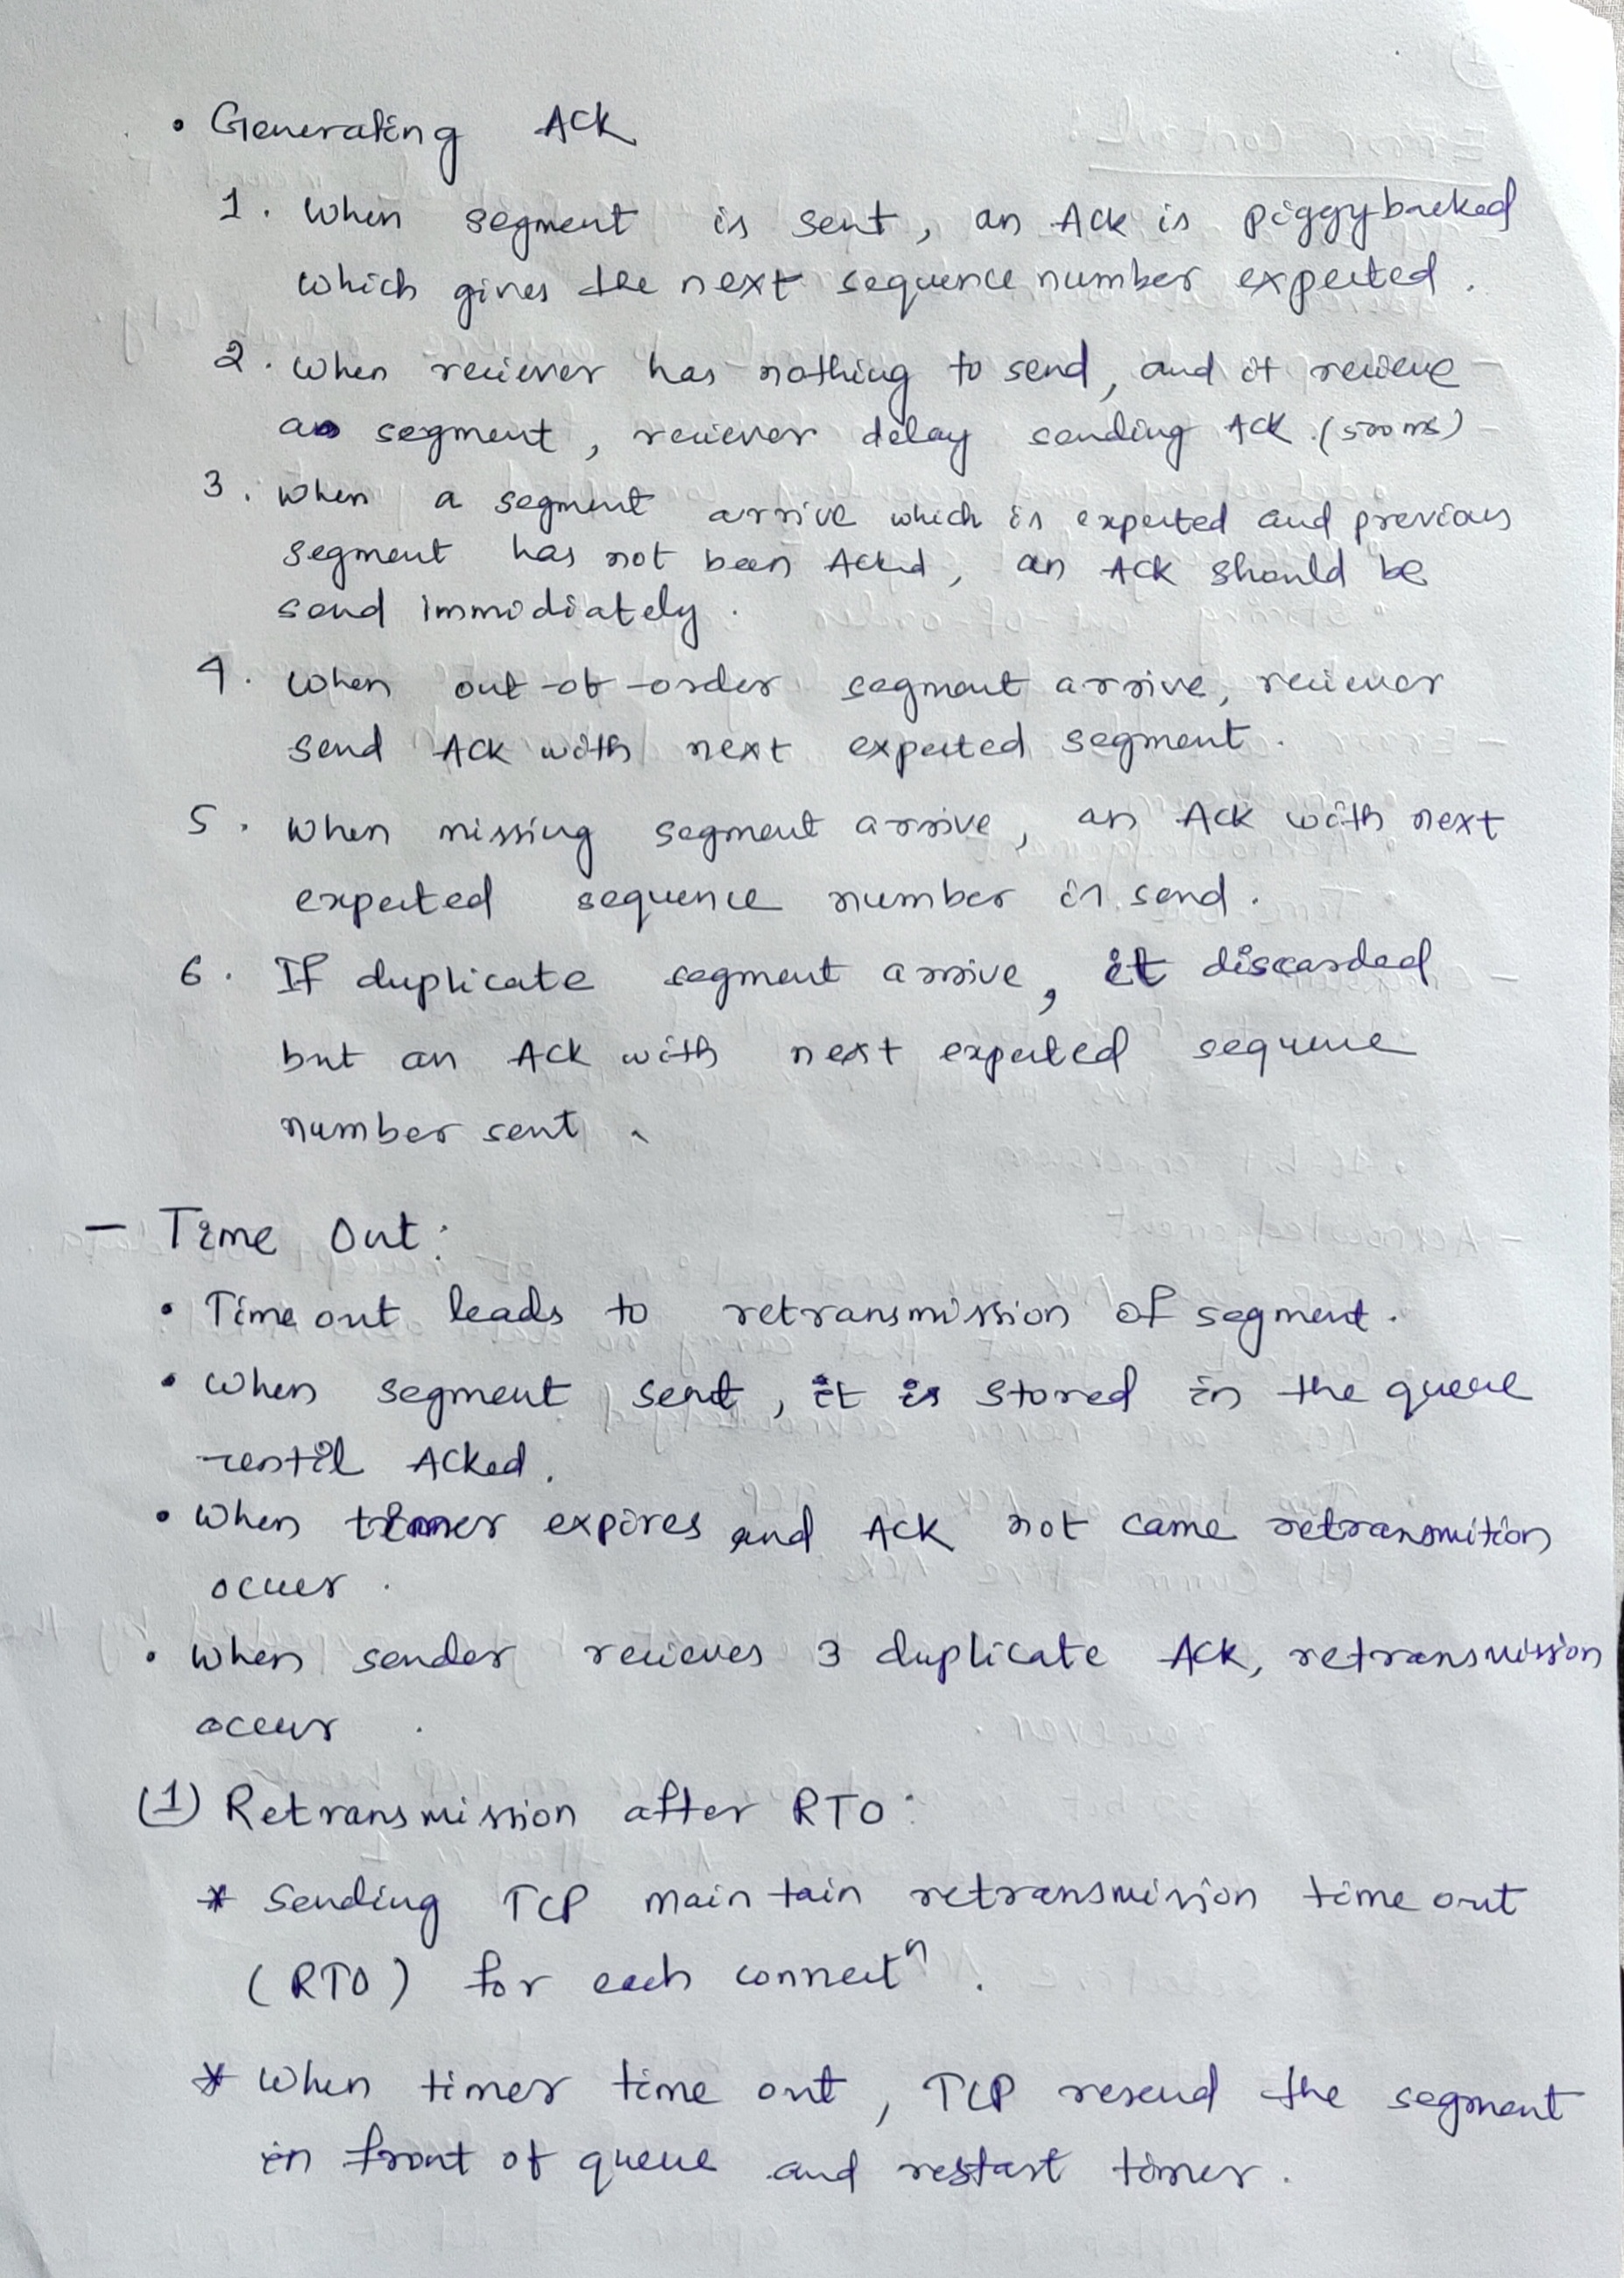 • Generating ACK
1. When segment is sent, an Ack is piggybacked
which gives the next sequence number expected.
2. When reciever has nothing to send, and it recieve
a segment, reciever delay sending ACK. (500 ms)
3. When a segment arrive which is expected and previous
segment has not been Acked, an ACK should be
send immidiately.
4. When out-of-order segment arrive, reciever
send ACK with next expected segment.
5. When missing segment arrive, an ACK with next
expected sequence number is send.
6. If duplicate segment arrive, it discarded
but an ACK with next expected sequence
number sent.
– Time Out:
• Time out leads to retransmission of segment.
• When segment sent, it is stored in the queue
until ACked.
• When timer expires and ACK not came retransmition
occur.
• When sender recieves 3 duplicate ACK, retransmission
occur.
(1) Retransmission after RTO:
* Sending TCP maintain retransmission time out
(RTO) for each connectⁿ.
* When timer time out, TCP resend the segment
in front of queue and restart timer.